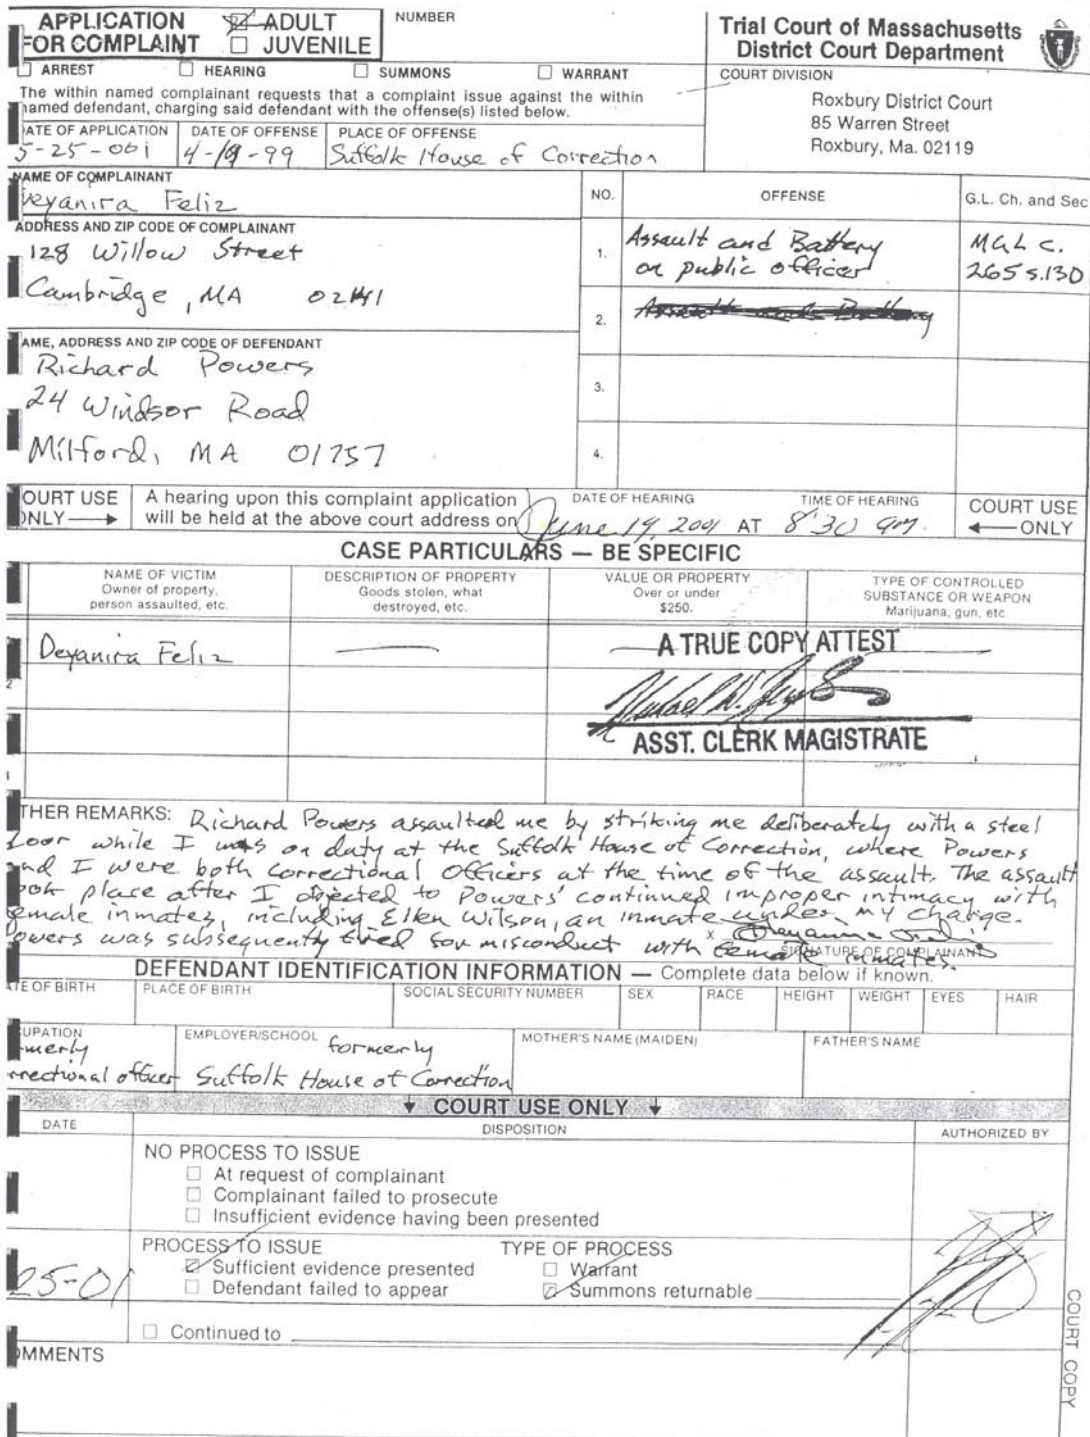 APPLICATION
FOR COMPLAINT
ADULT
JUVENILE
NUMBER
Trial Court of Massachusetts
District Court Department
ARREST HEARING SUMMONS WARRANT
COURT DIVISION
The within named complainant requests that a complaint issue against the within
named defendant, charging said defendant with the offense(s) listed below.
Roxbury District Court
85 Warren Street
Roxbury, Ma. 02119
ATE OF APPLICATION DATE OF OFFENSE PLACE OF OFFENSE
5-25-001 4-19-99 Suffolk House of Correction
NAME OF COMPLAINANT
Deyanira Feliz
NO. OFFENSE G.L. Ch. and Sec
ADDRESS AND ZIP CODE OF COMPLAINANT
128 Willow Street
Cambridge, MA 02141
1. Assault and Battery
on public officer
MGL c.
265 s.130
2. Assault and Battery
AME, ADDRESS AND ZIP CODE OF DEFENDANT
Richard Powers
24 Windsor Road
Milford, MA 01757
3.
4.
OURT USE
ONLY
A hearing upon this complaint application
will be held at the above court address on
DATE OF HEARING
June 19, 2001 AT
TIME OF HEARING
8:30 am.
COURT USE
ONLY
CASE PARTICULARS — BE SPECIFIC
NAME OF VICTIM
Owner of property,
person assaulted, etc.
DESCRIPTION OF PROPERTY
Goods stolen, what
destroyed, etc.
VALUE OR PROPERTY
Over or under
$250.
TYPE OF CONTROLLED
SUBSTANCE OR WEAPON
Marijuana, gun, etc.
Deyanira Feliz
A TRUE COPY ATTEST
ASST. CLERK MAGISTRATE
2
THER REMARKS: Richard Powers assaulted me by striking me deliberately with a steel
door while I was on duty at the Suffolk House of Correction, where Powers
and I were both Correctional Officers at the time of the assault. The assault
took place after I objected to Powers' continued improper intimacy with
female inmates, including Ellen Wilson, an inmate under my charge.
Powers was subsequently fired for misconduct with female inmates.
x Deyanira Feliz
SIGNATURE OF COMPLAINANT
DEFENDANT IDENTIFICATION INFORMATION — Complete data below if known.
TE OF BIRTH PLACE OF BIRTH SOCIAL SECURITY NUMBER SEX RACE HEIGHT WEIGHT EYES HAIR
CUPATION
formerly
correctional officer
EMPLOYER/SCHOOL formerly
Suffolk House of Correction
MOTHER'S NAME (MAIDEN)
FATHER'S NAME
COURT USE ONLY
DATE DISPOSITION AUTHORIZED BY
NO PROCESS TO ISSUE
At request of complainant
Complainant failed to prosecute
Insufficient evidence having been presented
PROCESS TO ISSUE TYPE OF PROCESS
25-01
Sufficient evidence presented Warrant
Defendant failed to appear Summons returnable
Continued to
OMMENTS
COURT COPY